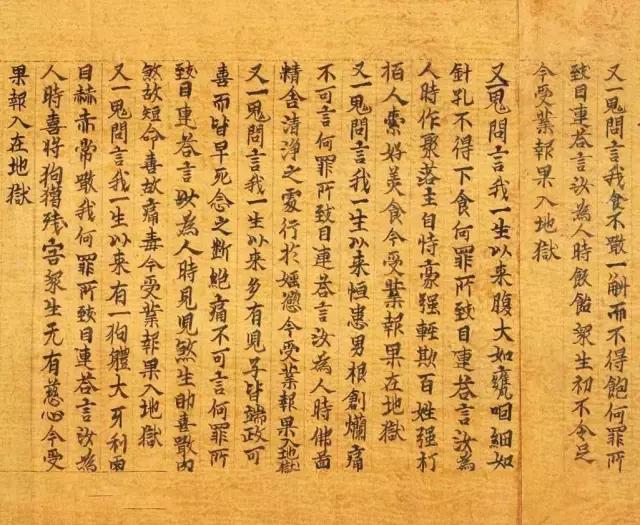 又一鬼問言我食不噉一斛而不得飽何罪所
致目連荅言汝為人時飯飴眾生初不令足
今受業報果入地獄
又一鬼問言我一生以来腹大如甕咽細如
針孔不得下食何罪所致目連荅言汝為
人時作聚落主自恃豪强輕欺百姓强打
拍人索好美食今受業報果在地獄
又一鬼問言我一生以来恒患男根創爛痛
不可言何罪所致目連荅言汝為人時佛啚
精舍清浄之處行於婬慾今受業報果入地獄
又一鬼問言我一生以来多有兒子皆端政可
善而皆早死念之断絶痛不可言何罪所
致目連荅言以為人時見兒煞生助喜噉肉
煞故短命喜故痛毒今受業報果入地獄
又一鬼問言我一生以来有一狗體大牙利兩
目赫赤常噉我何罪所致目連荅言汝為
人時喜將狗獵残害眾生无有慈心今受
果報入在地獄